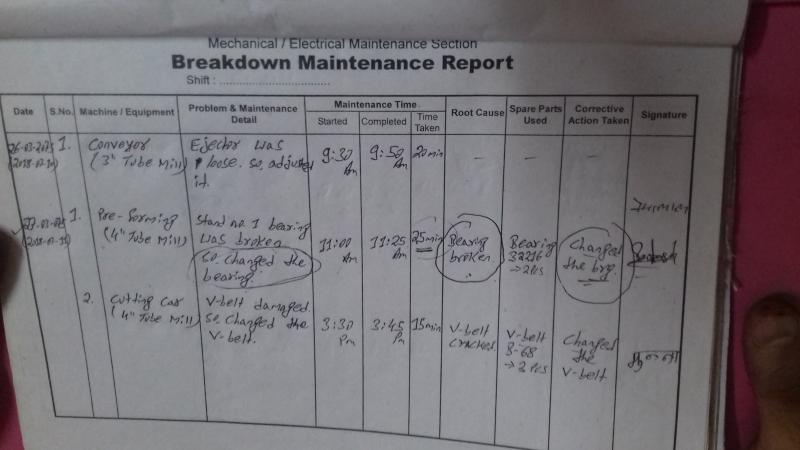 Mechanical / Electrical Maintenance Section
Breakdown Maintenance Report
Shift : ................................
Date
S.No.
Machine / Equipment
Problem & Maintenance
Detail
Maintenance Time
Started
Completed
Time
Taken
Root Cause
Spare Parts
Used
Corrective
Action Taken
Signature
1.
Conveyor
(3" Tube Mill)
Ejector was
loose. so, adjusted
it.
9:30
Am
9:50
Am
20 min
-
-
-
1.
Pre-forming
(4" Tube Mill)
Stand no. 1 bearing
was broken
so changed the
bearing.
11:00
Am
11:25
Am
25 min
Bearing
broken.
Bearing
32216
→ 2 Pcs
Changed
the brg.
2.
Cutting Car
(4" Tube Mill)
V-belt damaged.
so changed the
V-belt.
3:30
Pm
3:45
Pm
15 min
V-belt
cracked.
V-belt
B-68
→ 2 Pcs
Changed
the
V-belt